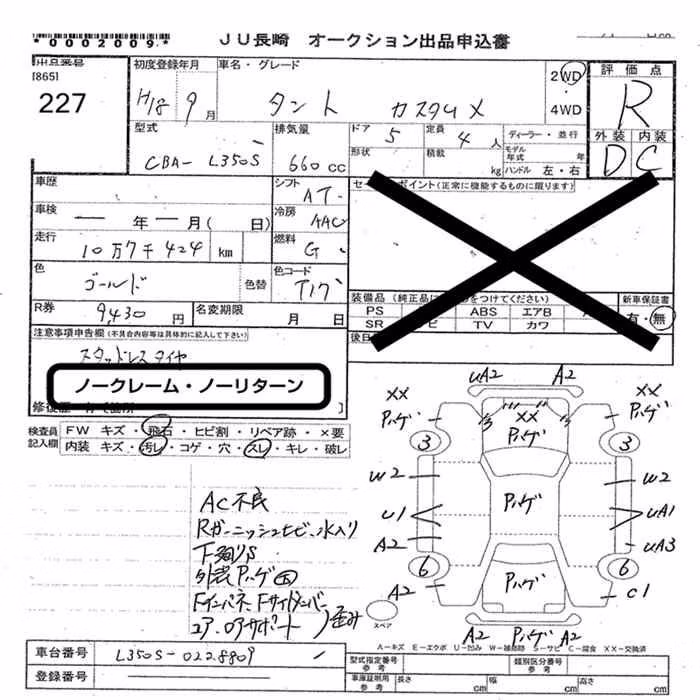 *0002009*
JU長崎 オークション出品申込書
出品番号
[865]
227
初度登録年月
H18 9月
車名・グレード
タント カスタムX
2WD
4WD
評価点
R
外装 内装
D C
型式
CBA- L350S
排気量
660cc
ドア 5
形状
定員 4人
積載 kg
ディーラー・並行
モデル年式 年
ハンドル 左・右
車歴
車検 — 年 — 月( 日)
走行
10万7千424 km
色
ゴールド
色替
R券 9430円
名変期限 月 日
シフト AT
冷房 AAC
燃料 G
色コード
T17
セールスポイント(正常に機能するものに限ります)
装備品
PS ABS エアB
SR TV カワ
新車保証書
有・無
注意事項申告欄(不具合内容等は具体的に記入して下さい)
スタッドレスタイヤ
ノークレーム・ノーリターン
検査員記入欄
FW キズ・飛石・ヒビ割・リペア跡・×要
内装 キズ・汚レ・コゲ・穴・スレ・キレ・破レ
AC不良
Rガーニッシュヒビ、水入り
下廻りS
外装Pハゲ大
Fインパネ、Fサイドメンバー
コア、ロアサポート 歪み
uA2 A2
XX XX
Pハゲ XX Pハゲ
Pハゲ
3 3
W2 W2
Pハゲ
U1 uA1
A2 uA3
6 6
Pハゲ
A2 C1
スペア
A2 Pハゲ A2
A-キズ E-エクボ U-凹み W-補修跡 S-サビ C-腐食 XX-交換済
車台番号 L350S-0228809
登録番号
型式指定番号 参考
類別区分番号 参考
車庫証明用 参考
長さ cm
幅 cm
高さ cm